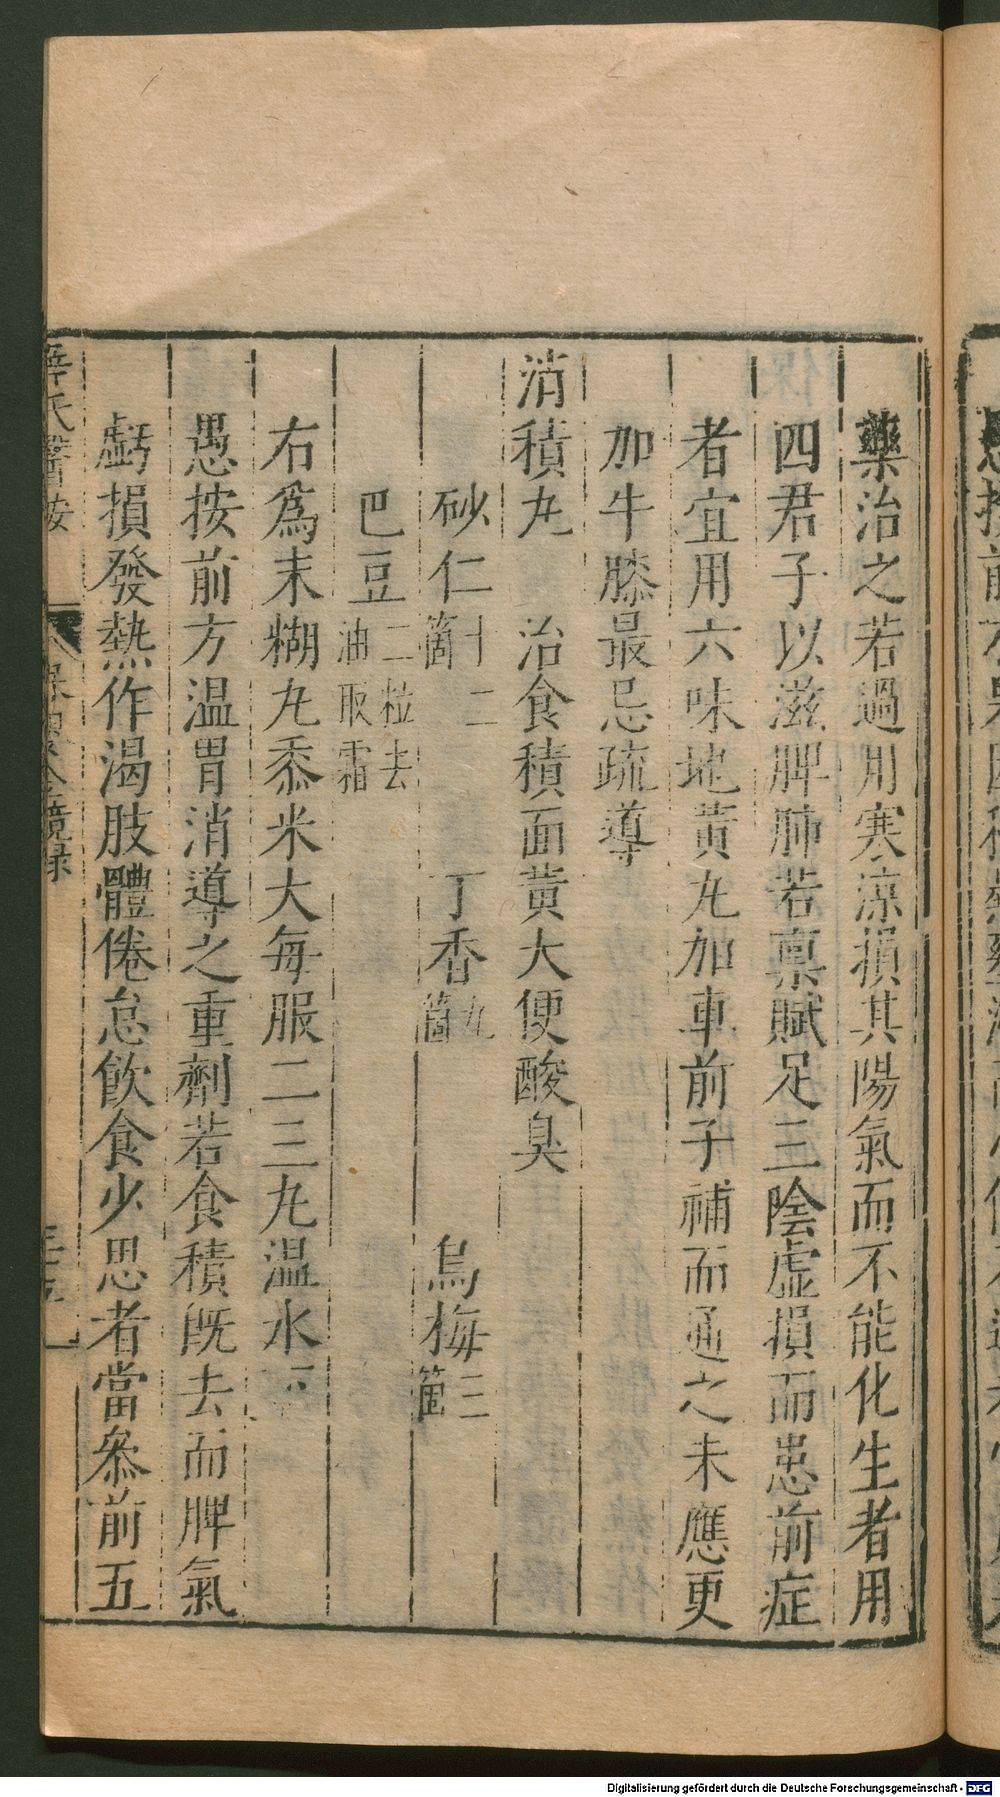 藥治之若過用寒涼損其陽氣而不能化生者用
四君子以滋脾肺若稟賦足三陰虛損而患前症
者宜用六味地黃丸加車前子補而通之未應更
加牛膝最忌疏導
消積丸　治食積面黃大便酸臭
砂仁十二箇　丁香九箇　烏梅三箇
巴豆二粒去油取霜
右爲末糊丸黍米大每服二三丸温水下
愚按前方温胃消導之重劑若食積既去而脾氣
虧損發熱作渴肢體倦怠飲食少思者當叅前五
薛氏醫按　保嬰金鏡錄
Digitalisierung gefördert durch die Deutsche Forschungsgemeinschaft - DFG